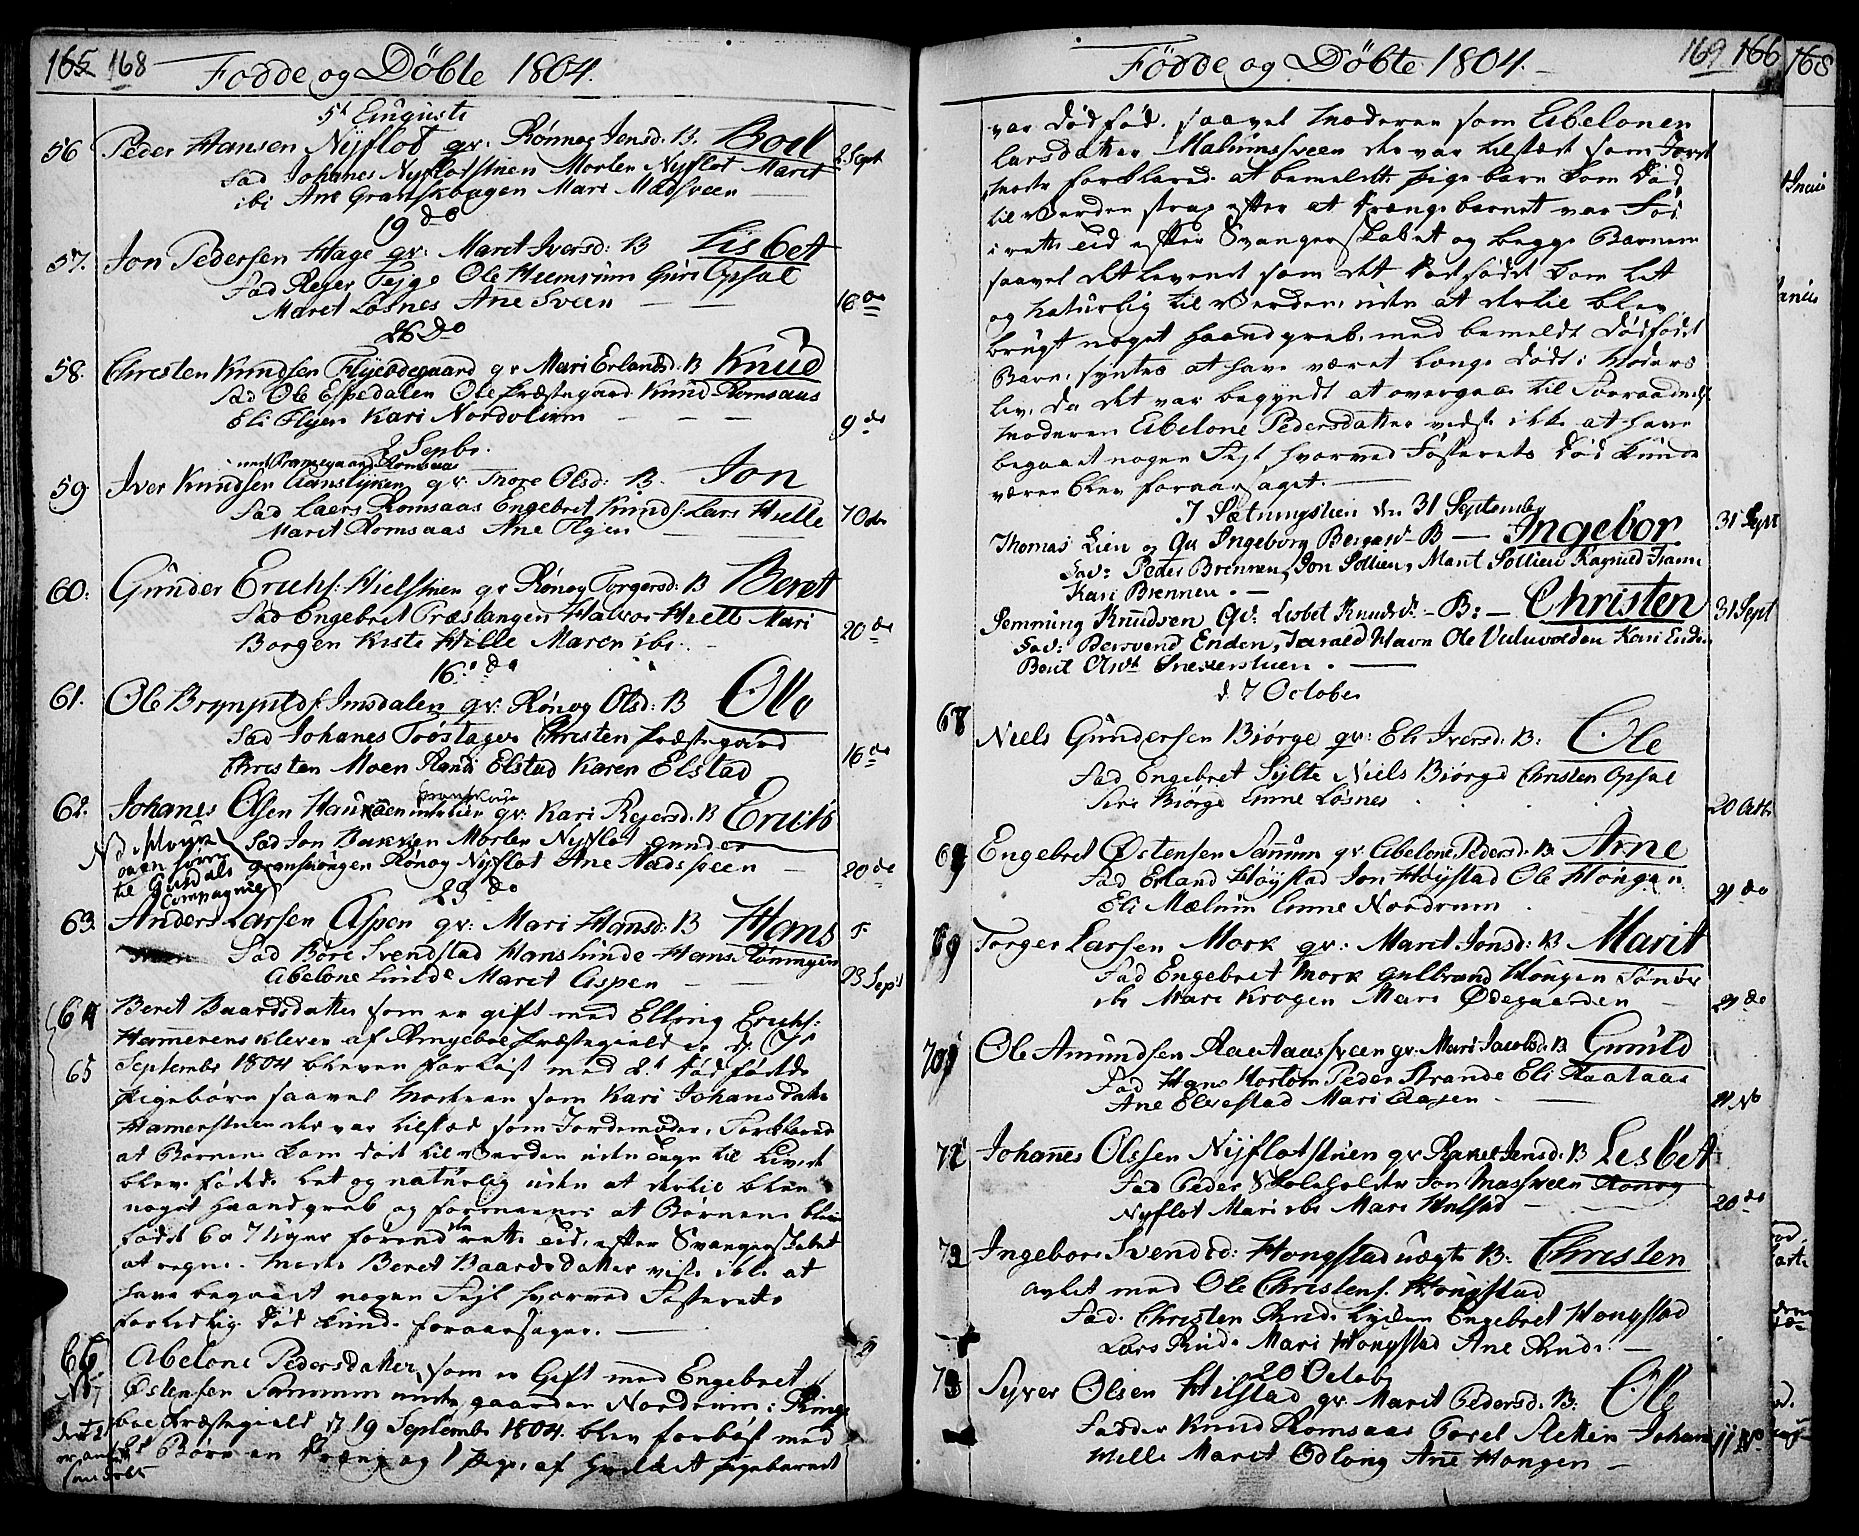 165 168 Fødde og Døbte 1804.
5t Auguste
56 Peder Hansen Nyflot gv. Rønnog Jensd. B. Boel 2 Sept
Fad Johanes Nyflotstuen Morten Nyflot Marit
ibi Ane Granskougen Mari Madsveen
19 do
57. Jon Pedersen Hage gv: Maret Iversd: B Lisbet
Fad Reyer Fejge Ole Heemsrum Guri Opsal
Maret Løsnes Ane Sveen 16 do
26 do
58. Christen Knudsen Flyødegaard gv Mari Erlandsd. B Knud
Fad Ole Espedalen Ole Præstegaard Knud Romsaas
Eli Flyen Kari Nordolium 9 do
2 Sepbr.
59 Iver Knudsen gv. Thore Olsd: B. Jon
Fad Laers Romsaas Engebret Knuds: Lars Hielle 10 do
Maret Romsaas Ane Flyen
60. Gunder Erichs: Hielstuen gv Rønog Torgersd: B Beret
Fad Engebret Træslangen Halvor Hielle Mari
Borgen Kirste Hielle Maren ibi 20 do
16. do
61. Ole Brynjulds: Imsdalen gv: Rønog Olsd: B Ole
Fad Johanes Frøstager Christen Præstegaard
Christen Moen Randi Elstad Karen Elstad 16 do
62. Johanes Olsen gv. Kari Rejersd. B Erich
Fad Jon Bakken Morten Nyflot Gunder
Granskougen Rønog Nyflot Ane Madssveen 20 do
til Gusdals
Compagnie
23 do
63. Anders Larsen Aspen gv: Mari Hansd: B Hans
Fad Bore Svendstad Hans Lunde Hans Rønningen
Abelone Lunde Maret Aspen 23 Sept
64 Beret Baardsdatter som er gift med Elling Erichs:
Hammerenskleven af Ringeboe Præstegield er d:
65 September 1804 bleven forløst med 2de død fødde
Pigebørn saavel Moderen som Kari Johansdatter
Hamerstuen der var tilstæd som Jordemoder, forklared
at Børnene kom død til Verden uden Tegn til Livet
blev fødde let og naturlig uden at dertil blev
noget Haandgreb og formeenes at Børnene blev
født 6 a 7 Uger forend den rette Tid, efter Svangerskabet
at regne. Moder Beret Baardsdatter viste ikke at
have begaaet nogen Fejl hvorved Fosterets
forlidtlig død kunde foraarsages.
66 Abelone Pedersdatter, som er Gift med Engebret
Østensen Sannum gaarden Nordrum i Ringe
boe Præstegield d 19 September 1804 blev forløst med
2de Børn en Dreng og 1 Pige, af hvilket Pigebarnet
Fødde og Døbte 1804. 169 166 168
var dødfød. saavel Moderen som Abelonen
Larsdatter Malumsveen der var tilstæd som Jorde
moder forklared at bemeldte Pige barn kom død
til Verden strax efter at Drengebarnet var fød
i rette Tid efter Svangerskabet og begge Barnene
saavel det levende som det dødfødde kom let
og naturlig til Verden, uden at dertil blev
brugt noget Haandgreb, med bemeldte dødfødde
Barn, syntes at have været længe død i Moders
liv, da det var begyndt at overgaae til Forraadnelse
Moderen Abelone Pedersdatter vidste ikke at have
begaaet nogen Fejl hvorved Fosterets død kunde
være blev foraarsaget.
I Sætningslien den 31 September
Thomas Lien og Gu Ingeborg Bergard- B — Ingebor 31 Sept
Fav: Peder Brennen, Jon Sollien, Marit Sollien Ragnild
Kari Brennen.
Jemming Knudsen Gv: Lisbet Knudsd. - B: — Christen 31 Sept
Fav: Bersvend Enden, Harald Havn Ole Vuluvolden Kari Enden
Beret
d. 7 October
67 Niels Gundersen Biørge gv: Eli Iversd. B: Ole
Fad Engebret Sylte Niels Biørge Christen Opsal
Siri Biørge Emne Løsnes 20 Octb
68 Engebret Østensen Sannum gv Abelone Pedersd: B: Arne
Fad Erland Høystad Jon Høystad Ole Hougen
Eli Mælum Emne Nordrum 21 do
69 Torger Larsen Mork gv: Maret Jonsd: B Marit
Fad Engebret Mork Gulbrand Hougen Sønøv
ibi Mari Krogen Mari Ødegaarden 21 do
70 Ole Amundsen Raataassveen gv. Mari Jacobsd. B Gunild
Fad Hans Hortom Peder Strande Eli Raataas
Ane Elvestad Mari Aasen 11 No
71 Johannes Olssen Nyflotstuen gv Raket Jensd: B Lesbet
Fad Peder Skoleholder Jon Massveen Ronog
Nyflot Mari ibi Mari Hulstad 20 do
72 Ingebor Svendsd: Hongstad uægte B: Christen
avlet med Ole Christens. Hougstad
Fad. Christen Rude Lyden Engebret Hongstad
Lars Rude Mari Hongstad Ane Rude
20 Octob
73 Syver Olsen Hilstad gv Marit Pedersd. B: Ole
Fadder Knud Romsaas Torel Stekien Johan 11 No
Hielle Maret Odlong Ane Hongen